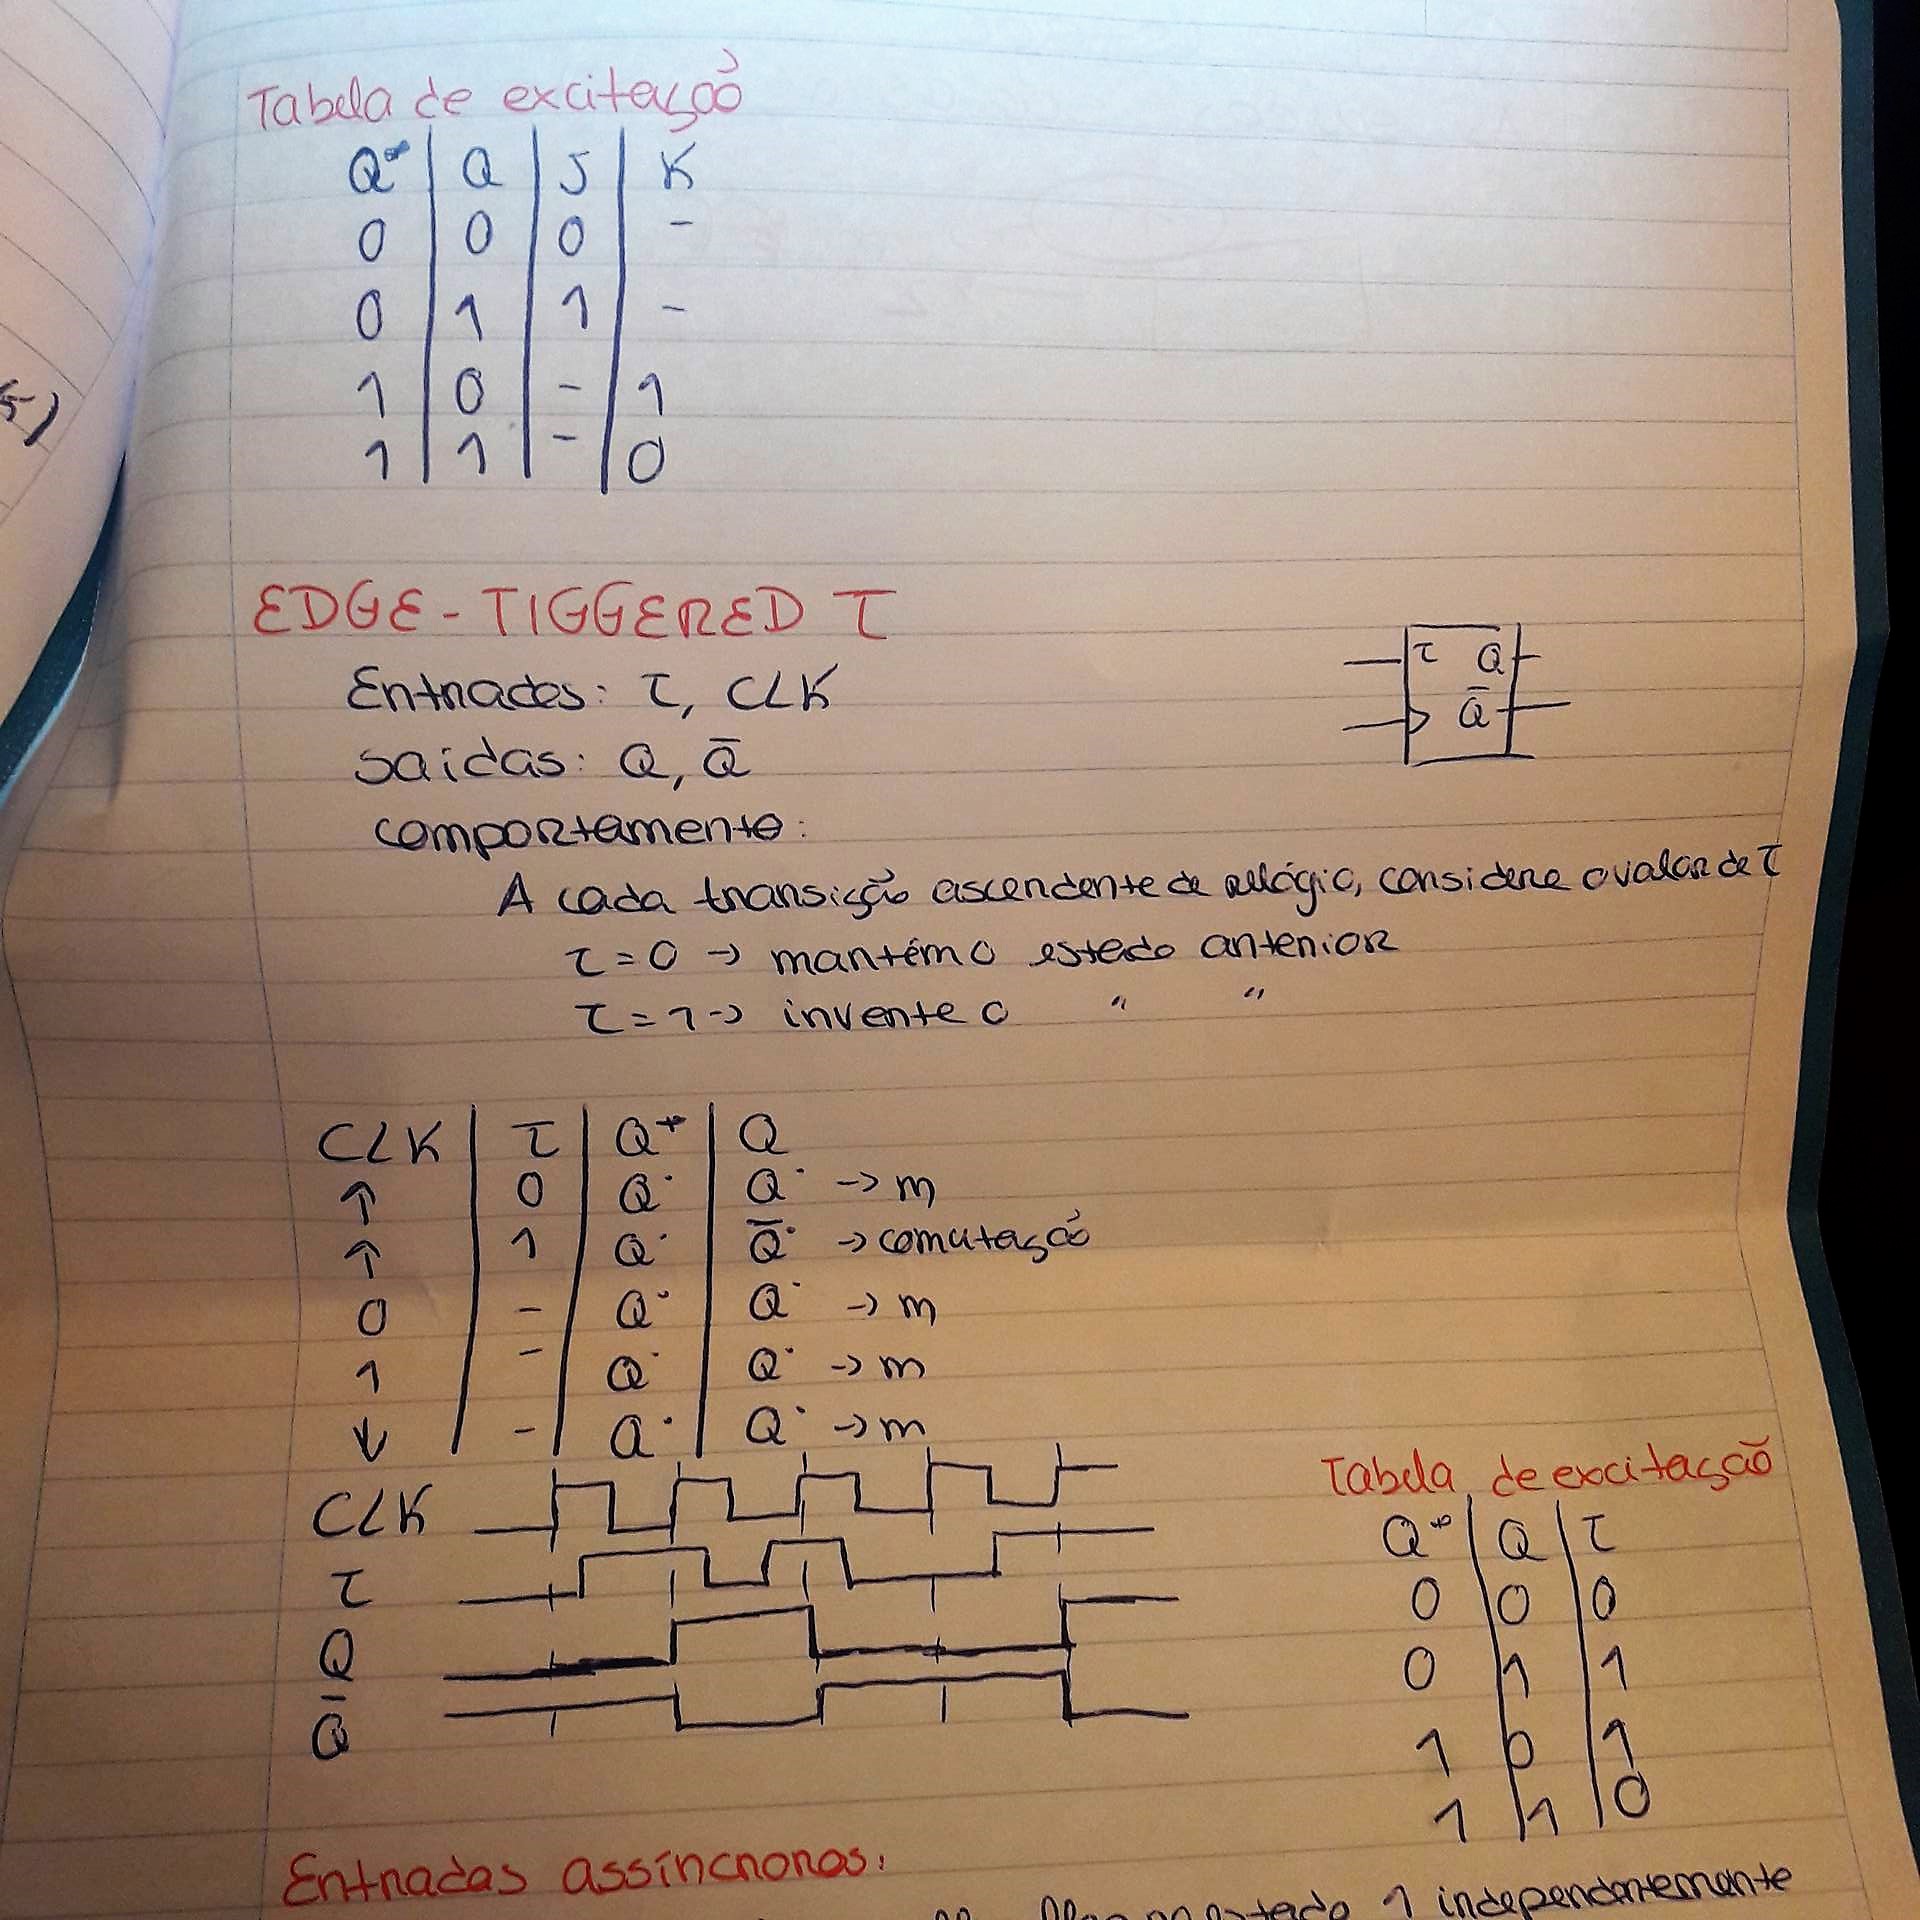 Tabela de excitação
Q* | Q | J | K
0 | 0 | 0 | -
0 | 1 | 1 | -
1 | 0 | - | 1
1 | 1 | - | 0
EDGE-TIGGERED T
Entradas: T, CLK
T Q
Q̅
saidas: Q, Q̅
comportamento:
A cada transição ascendente de relógio, considere o valor de T
T = 0 → mantém o estado anterior
T = 1 → inverte o " "
CLK | T | Q* | Q
↑ | 0 | Q* | Q* → m
↑ | 1 | Q* | Q̅* → comutação
0 | - | Q* | Q* → m
1 | - | Q* | Q* → m
↓ | - | Q* | Q* → m
CLK
T
Q
Q̅
Tabela de excitação
Q* | Q | T
0 | 0 | 0
0 | 1 | 1
1 | 0 | 1
1 | 1 | 0
Entradas assíncronas:
estado 1 independentemente